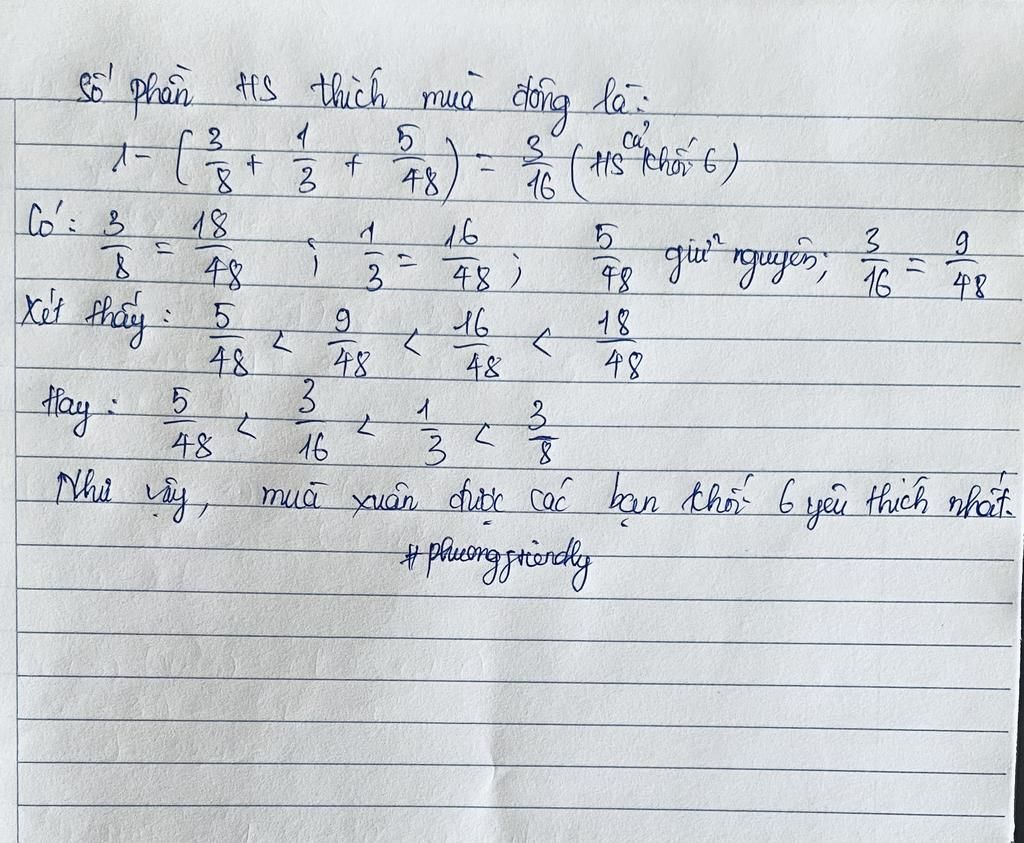 Số phần HS thích mùa đông là:
1 - (3/8 + 1/3 + 5/48) = 3/16 (HS cả khối 6)
Có: 3/8 = 18/48 ; 1/3 = 16/48 ; 5/48 giữ nguyên; 3/16 = 9/48
Xét thấy: 5/48 < 9/48 < 16/48 < 18/48
Hay: 5/48 < 3/16 < 1/3 < 3/8
Như vậy, mùa xuân được các bạn khối 6 yêu thích nhất.
#phuongfriendly